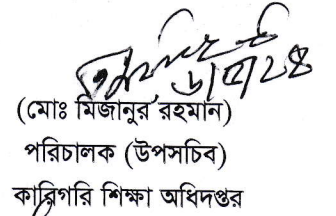 (মোঃ মিজানুর রহমান)
পরিচালক (উপসচিব)
কারিগরি শিক্ষা অধিদপ্তর